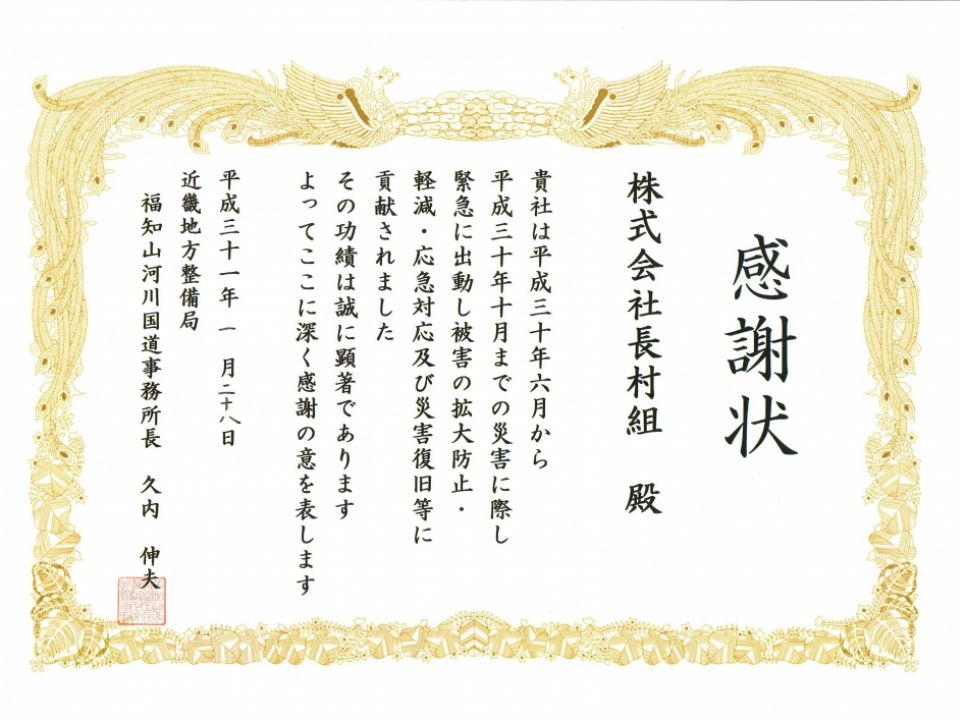 感謝状
株式会社長村組 殿
貴社は平成三十年六月から
平成三十年十月までの災害に際し
緊急に出動し被害の拡大防止・
軽減・応急対応及び災害復旧等に
貢献されました
その功績は誠に顕著であります
よってここに深く感謝の意を表します
平成三十一年一月二十八日
近畿地方整備局
福知山河川国道事務所長 久内 伸夫